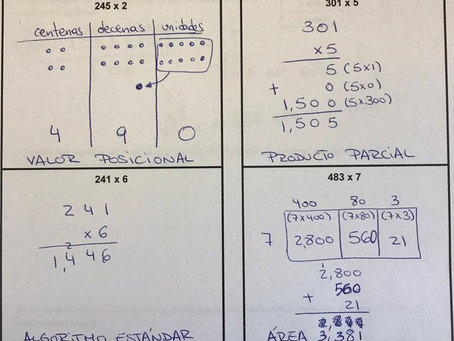 245 x 2
centenas decenas unidades
4 9 0
VALOR POSICIONAL
301 x 5
301
x5
5 (5x1)
+ 0 (5x0)
1,500 (5x300)
1,505
PRODUCTO PARCIAL
241 x 6
241
x6
2
1,446
ALGORITMO ESTÁNDAR
483 x 7
400 80 3
(7x400) (7x80) (7x3)
7 2,800 560 21
1
2,800
560
+ 21
ÁREA 3,381